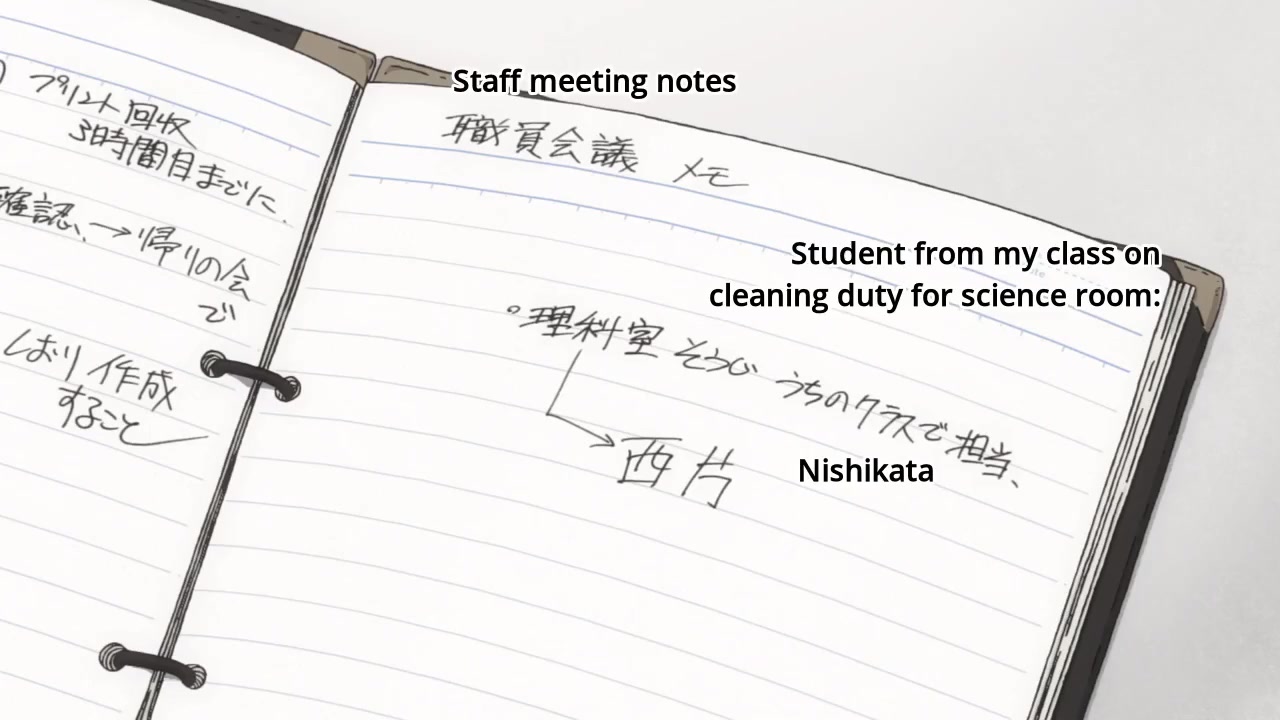 プリント回収
3時間目までに、
確認、→帰りの会
で
しおり作成
すること
Staff meeting notes
職員会議 メモ
Student from my class on
cleaning duty for science room:
理科室 そうじ うちのクラスで担当、
西片
Nishikata